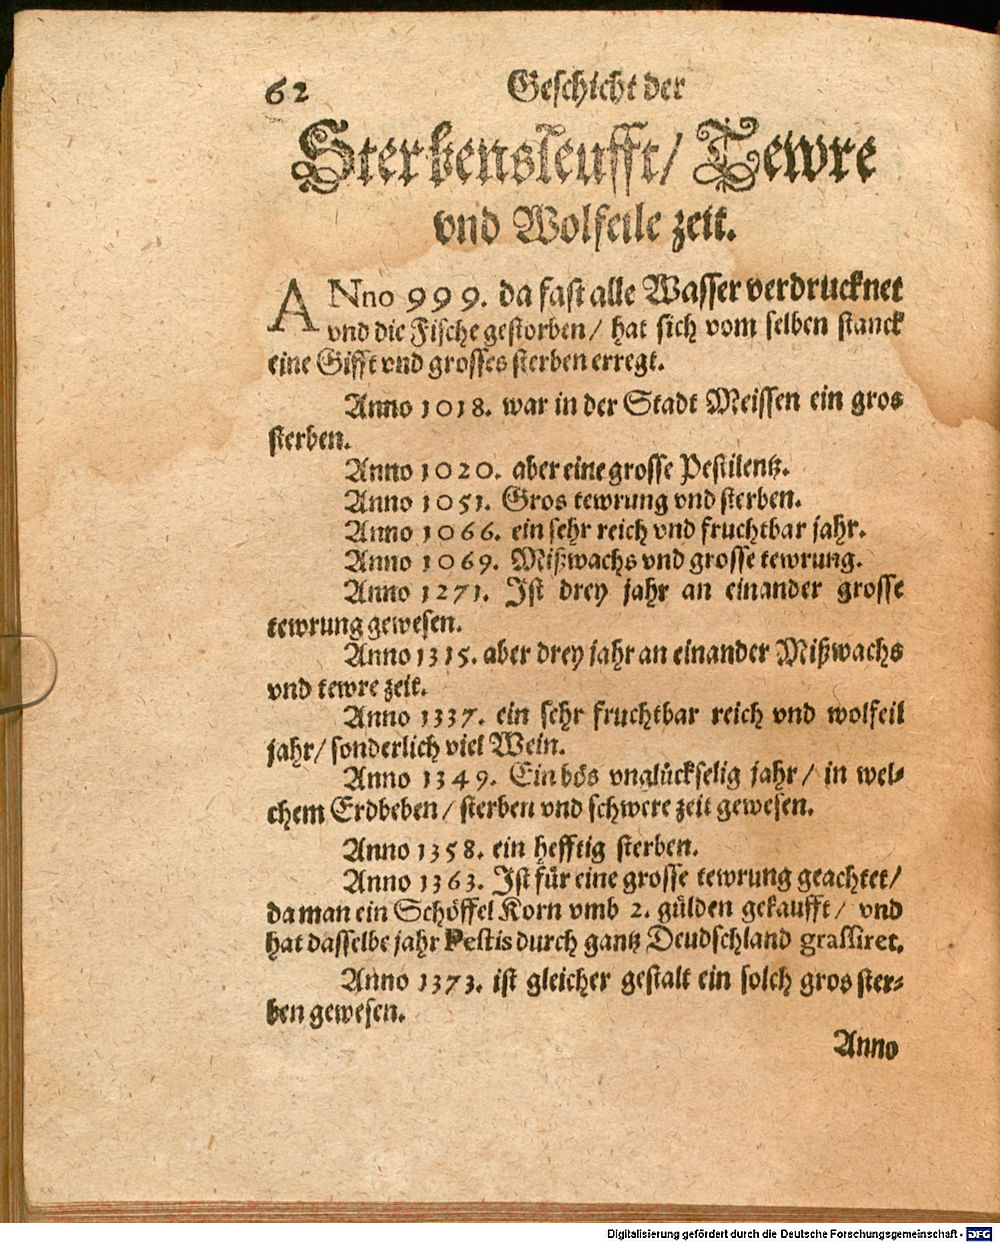 62 Geschicht der
Sterbensleufft/ Tewre
vnd Wolfeile zeit.
ANno 999. da fast alle Wasser verdrucknet
vnd die Fische gestorben/ hat sich vom selben stanck
eine Gifft vnd grosses sterben erregt.
Anno 1018. war in der Stadt Meissen ein gros
sterben.
Anno 1020. aber eine grosse Pestilentz.
Anno 1051. Gros tewrung vnd sterben.
Anno 1066. ein sehr reich vnd fruchtbar jahr.
Anno 1069. Mißwachs vnd grosse tewrung.
Anno 1271. Ist drey jahr an einander grosse
tewrung gewesen.
Anno 1315. aber drey jahr an einander Mißwachs
vnd tewre zeit.
Anno 1337. ein sehr fruchtbar reich vnd wolfeil
jahr/ sonderlich viel Wein.
Anno 1349. Ein bös vnglückselig jahr/ in wel-
chem Erdbeben/ sterben vnd schwere zeit gewesen.
Anno 1358. ein hefftig sterben.
Anno 1363. Ist für eine grosse tewrung geachtet/
da man ein Schöffel Korn vmb 2. gülden gekaufft/ vnd
hat dasselbe jahr Pestis durch gantz Deudschland grassiret.
Anno 1373. ist gleicher gestalt ein solch gros ster-
ben gewesen.
Anno
Digitalisierung gefördert durch die Deutsche Forschungsgemeinschaft - DFG